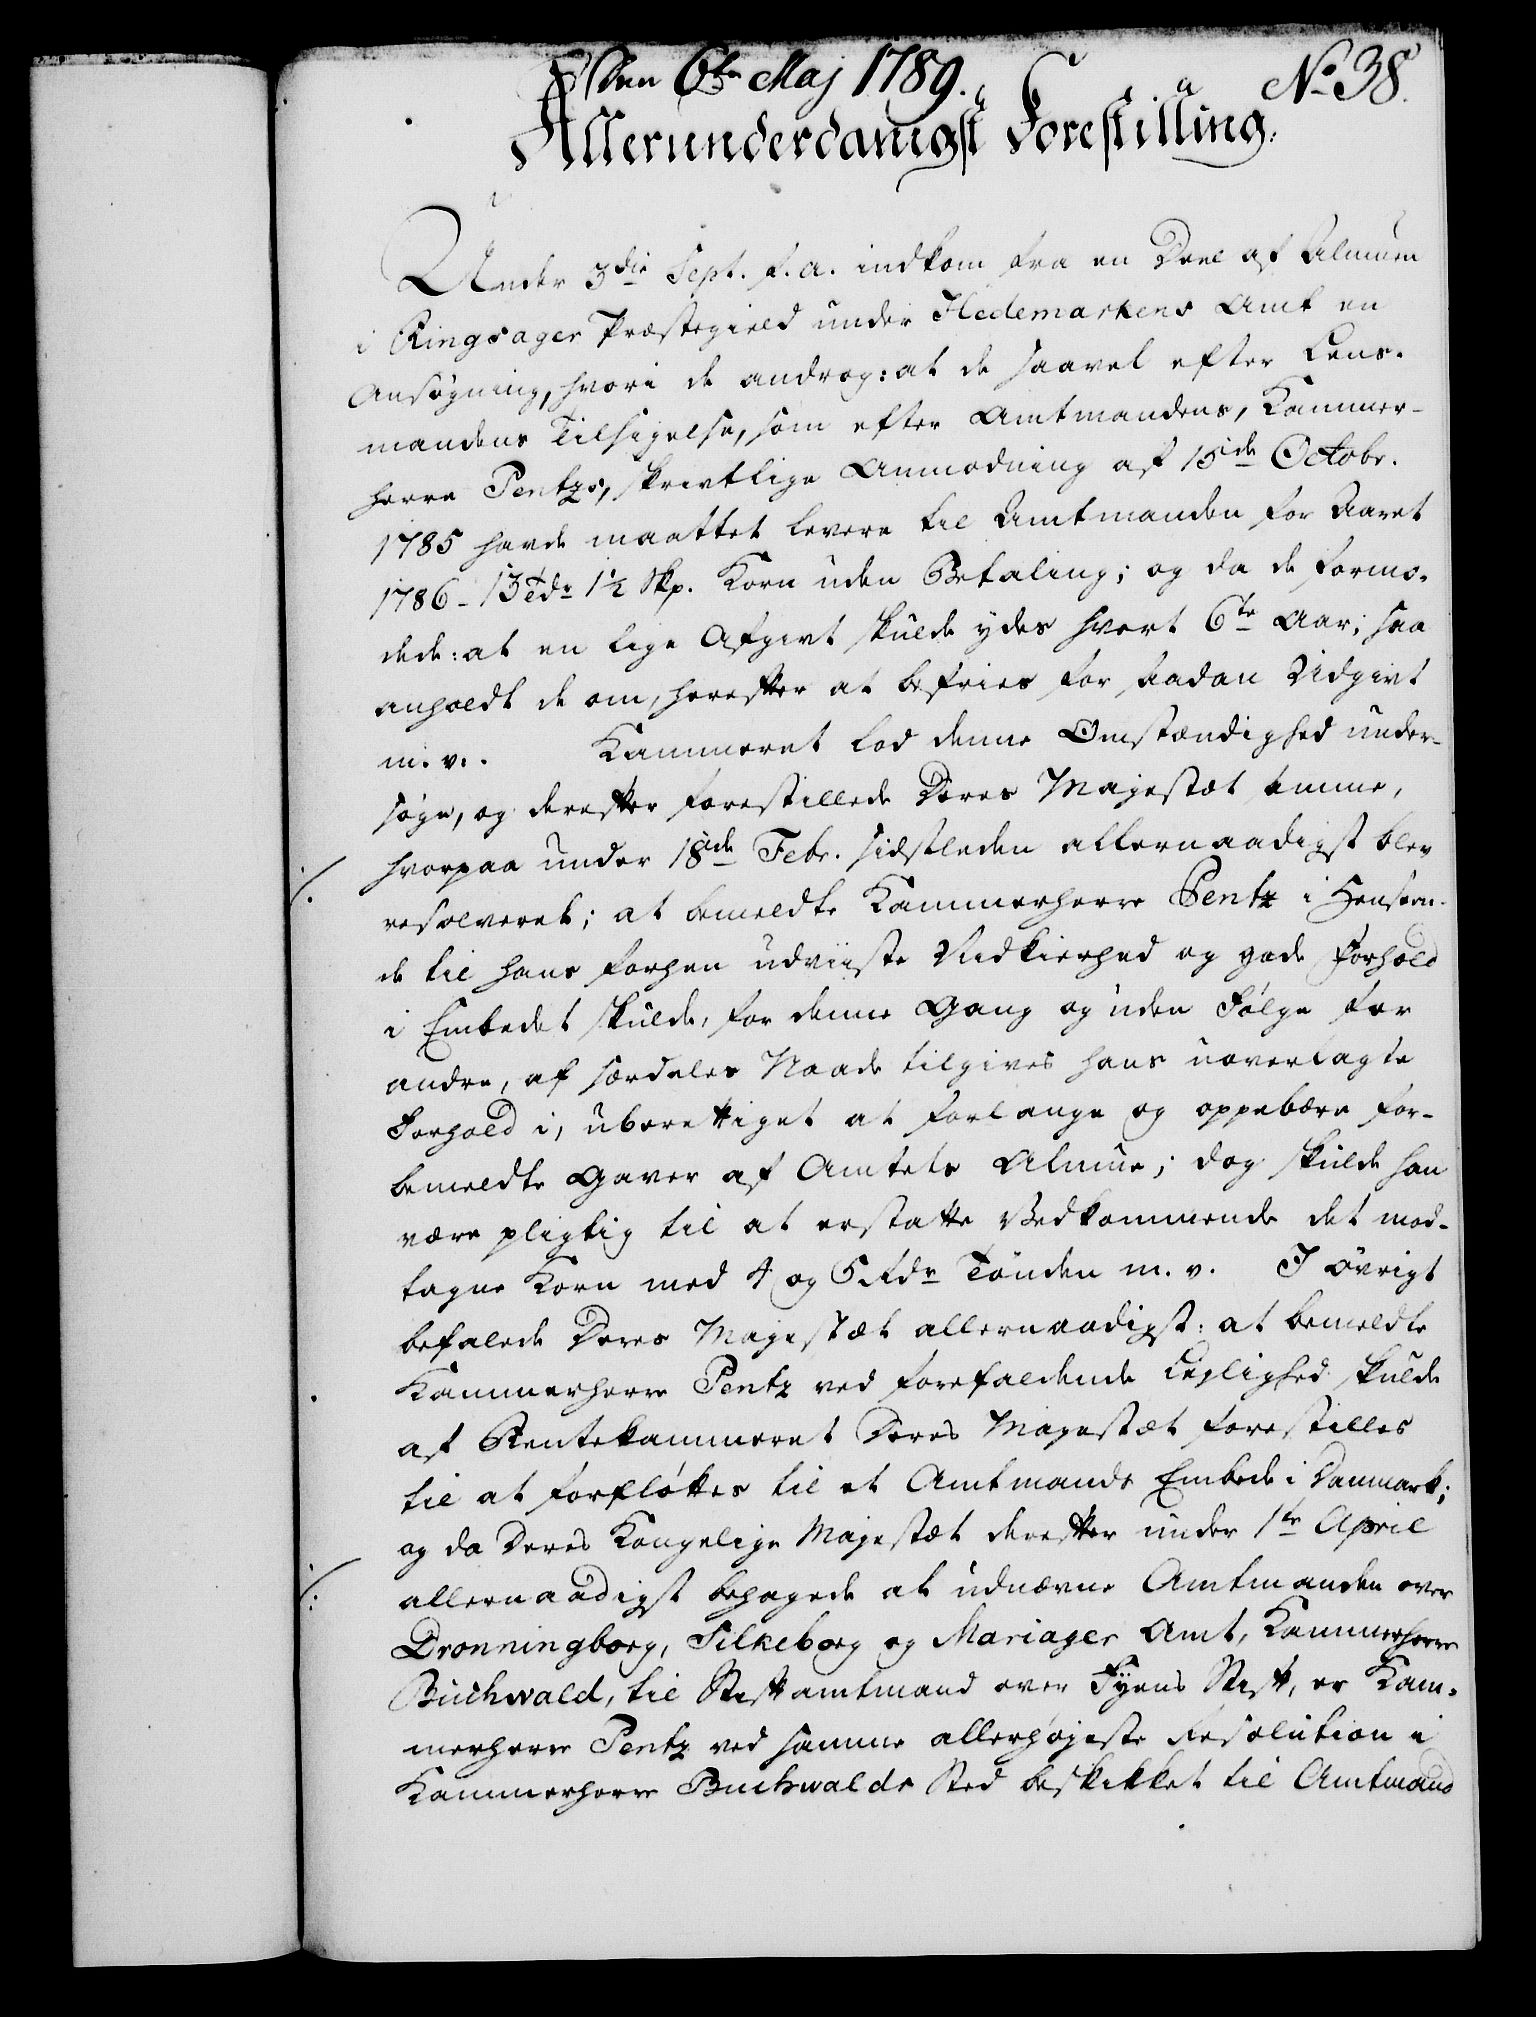 Den 6te Maj 1789. No 38.
Allerunderdanigst Forestilling.
Under 3die Sept. f. a. indkom fra en Deel af Almuen
i Ringsager Præstegield under Hedemarkens Amt en
Ansøgning, hvori de androg: at de saavel efter Lens-
mandens Tilsigelse, som efter Amtmandens, Kammer-
herre Pentzs, skrivtlige Anmodning af 15de Octobr.
1785 havde maattet levere til Amtmanden for Aaret
1786 - 13 Tdr 1½ Skp. Korn uden Betaling; og da de formo-
dede: at en lige Afgivt skulde ydes hvert 6te Aar; saa
anholdt de om, herefter at befries for saadan Udgivt
m. v. Kammeret lod denne Omstændighed under-
søge, og derefter forestillede Deres Majestæt samme,
hvorpaa under 18de Febr. sidstleden allernaadigst blev
resolveret; at bemeldte Kammerherre Pentz i Henseen-
de til hans forhen udviiste Nidkierhed og gode Forhold
i Embedet skulde, for denne Gang og uden Følge for
andre, af særdeles Naade tilgives hans uoverlagte
Forhold i, uberettiget at forlange og oppebære for-
bemeldte Gaver af Amtets Almue; dog skulde han
være pligtig til at erstatte Vedkommende det mod-
tagne Korn med 4 og 5 Rdr Tønden m. v. I øvrigt
befalede Deres Majestæt allernaadigst: at bemeldte
Kammerherre Pentz ved forefaldende Leylighed skulde
af Rentekammeret Deres Majestæt forestilles
til at forfløttes til et Amtmands Embede i Danmark;
og da Deres Kongelige Majestæt derefter under 1te April
allernaadigst behagede at udnævne Amtmanden over
Dronningborg, Silkeborg og Mariager Amt, Kammerherre
Buchwald, til Stiftamtmand over Fyens Stift, er Kam-
merherre Pentz ved samme allerhøjeste Resolution i
Kammerherre Buchwalds Sted beskikket til Amtmand